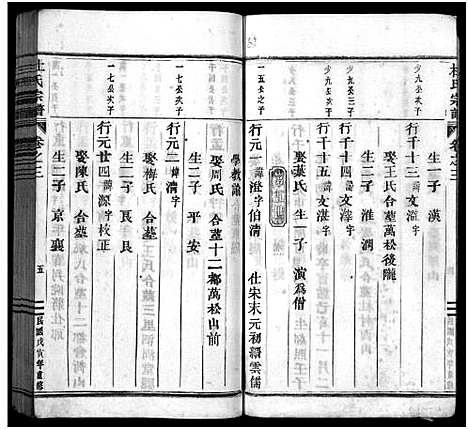 杜氏宗譜
卷之三
生一子 漢
少九公三子
行千十三 文溢字
娶王氏合墓萬松後隴
生二子 淮 潤
少九公三子
行千十四 文濂字
少九公次子
行千十五 文湛字
娶葉氏 生一子 演爲僧
一五公之子
行元一 諱澄字伯清 仕宋末元初縉雲儒
學教諭
娶周氏 合墓十二都萬松山前
生二子 平 安
一七公次子
行元二 諱清字
娶梅氏 合墓
生二子 良 艮
一七公次子
行元廿四 諱源字校正
娶陳氏 合墓
生二子 京 襄
杜氏宗譜
卷之三
五
民國戊寅年重修